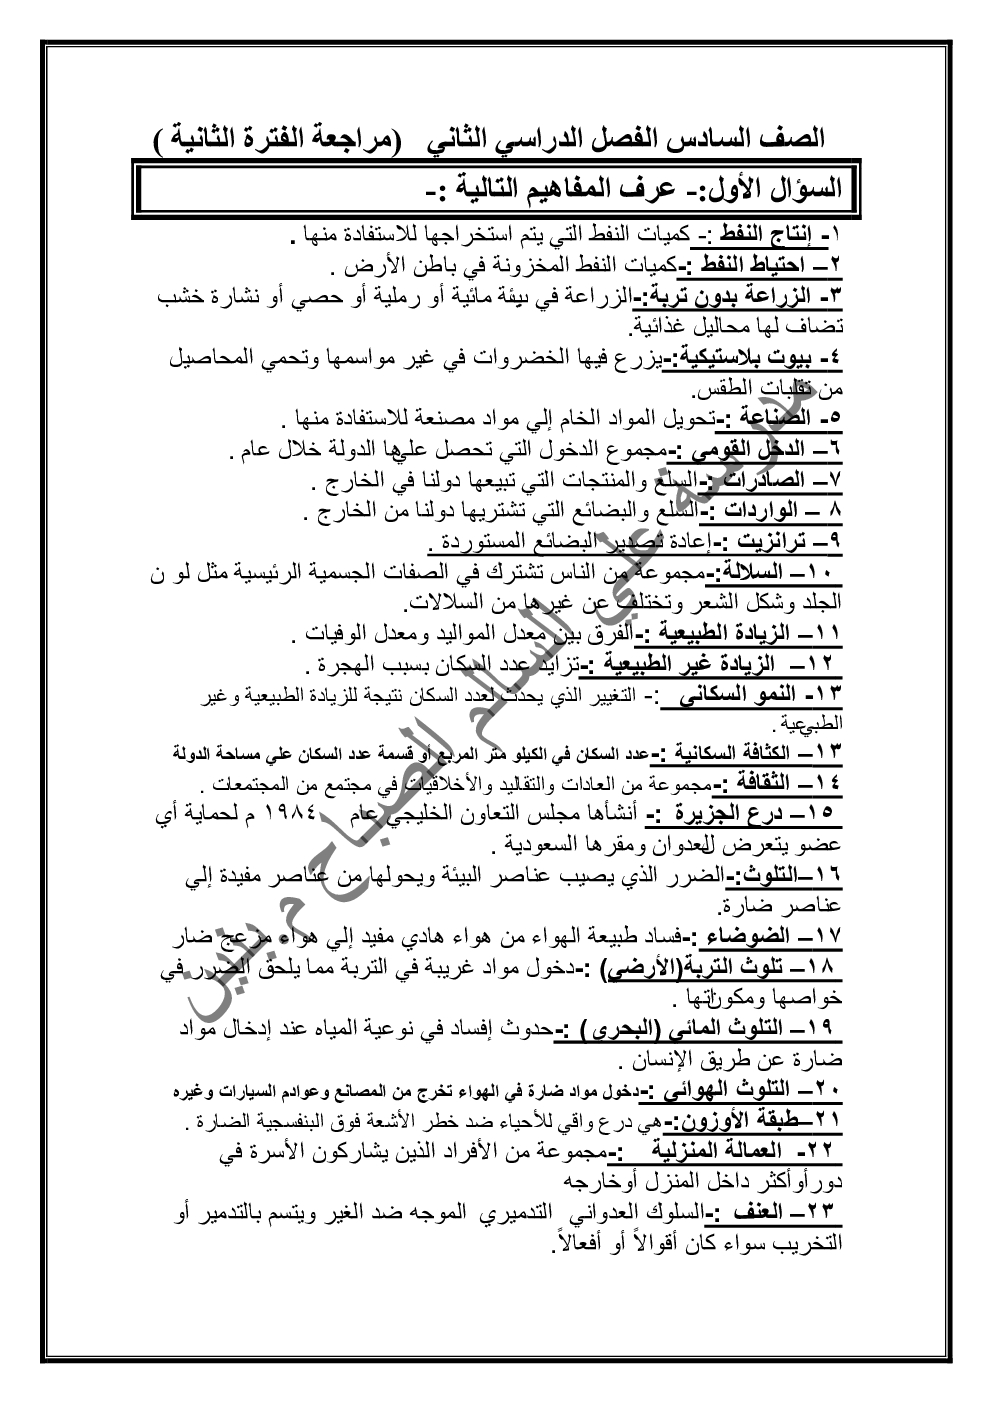 الصف السادس الفصل الدراسي الثاني (مراجعة الفترة الثانية )
السؤال الأول:- عرف المفاهيم التالية :-
١- إنتاج النفط :- كميات النفط التي يتم استخراجها للاستفادة منها .
٢– احتياط النفط :-كميات النفط المخزونة في باطن الأرض .
٣- الزراعة بدون تربة:-الزراعة في بيئة مائية أو رملية أو حصي أو نشارة خشب
تضاف لها محاليل غذائية.
٤- بيوت بلاستيكية:-يزرع فيها الخضروات في غير مواسمها وتحمي المحاصيل
من تقلبات الطقس.
٥- الصناعة :-تحويل المواد الخام إلي مواد مصنعة للاستفادة منها .
٦– الدخل القومي :-مجموع الدخول التي تحصل عليها الدولة خلال عام .
٧– الصادرات :-السلع والمنتجات التي تبيعها دولنا في الخارج .
٨ – الواردات :-السلع والبضائع التي تشتريها دولنا من الخارج .
٩– ترانزيت :-إعادة تصدير البضائع المستوردة .
١٠– السلالة:-مجموعة من الناس تشترك في الصفات الجسمية الرئيسية مثل لو ن
الجلد وشكل الشعر وتختلف عن غيرها من السلالات.
١١– الزيادة الطبيعية :-الفرق بين معدل المواليد ومعدل الوفيات .
١٢– الزيادة غير الطبيعية :-تزايد عدد السكان بسبب الهجرة .
١٣- النمو السكاني :- التغيير الذي يحدث لعدد السكان نتيجة للزيادة الطبيعية وغير
الطبيعية .
١٣– الكثافة السكانية :-عدد السكان في الكيلو متر المربع أو قسمة عدد السكان علي مساحة الدولة
١٤– الثقافة :-مجموعة من العادات والتقاليد والأخلاقيات في مجتمع من المجتمعات .
١٥– درع الجزيرة :- أنشأها مجلس التعاون الخليجي عام ١٩٨٤ م لحماية أي
عضو يتعرض للعدوان ومقرها السعودية .
١٦–التلوث:-الضرر الذي يصيب عناصر البيئة ويحولها من عناصر مفيدة إلي
عناصر ضارة.
١٧– الضوضاء :-فساد طبيعة الهواء من هواء هادي مفيد إلي هواء مزعج ضار
١٨– تلوث التربة(الأرضي) :-دخول مواد غريبة في التربة مما يلحق الضرر في
خواصها ومكوناتها .
١٩– التلوث المائي (البحري) :-حدوث إفساد في نوعية المياه عند إدخال مواد
ضارة عن طريق الإنسان .
٢٠– التلوث الهوائي :-دخول مواد ضارة في الهواء تخرج من المصانع وعوادم السيارات وغيره
٢١–طبقة الأوزون:-هي درع واقي للأحياء ضد خطر الأشعة فوق البنفسجية الضارة .
٢٢- العمالة المنزلية :-مجموعة من الأفراد الذين يشاركون الأسرة في
دورأوأكثر داخل المنزل أوخارجه
٢٣– العنف :-السلوك العدواني التدميري الموجه ضد الغير ويتسم بالتدمير أو
التخريب سواء كان أقوالاً أو أفعالاً.
مدرسة علي السالم الصباح م بنين